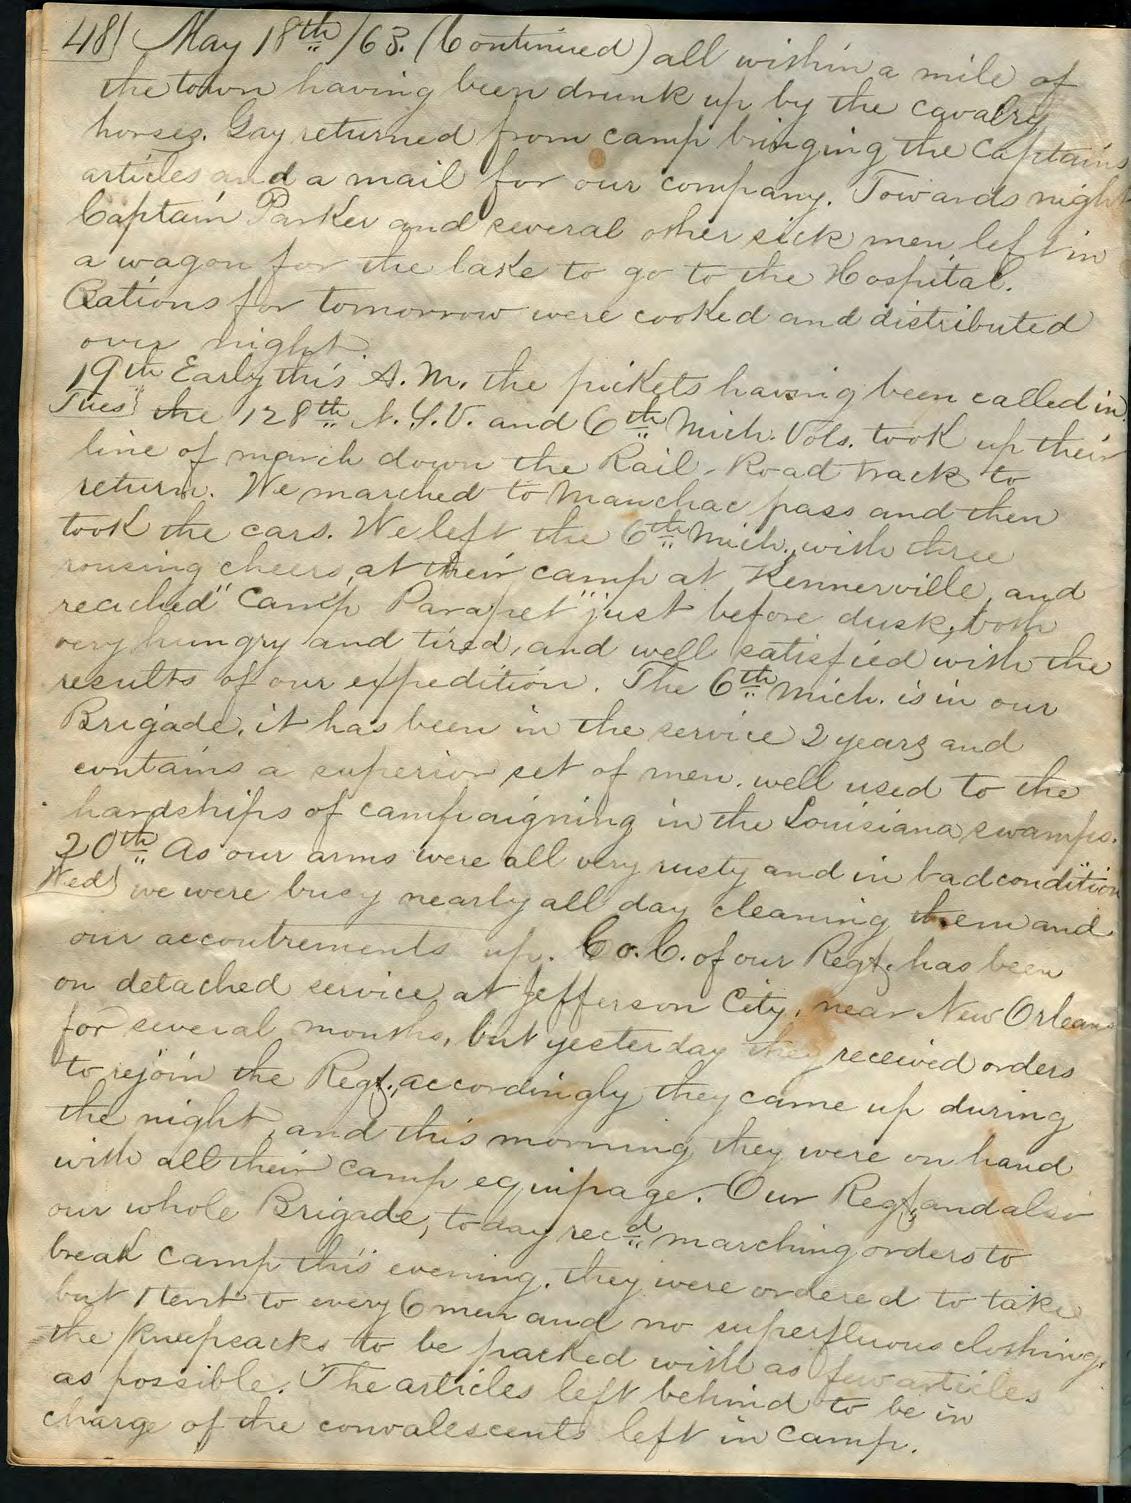 48} May 18th/63. (Continued) all within a mile of
the town having been drunk up by the cavalry
horses. Gay returned from camp bringing the Captains
articles and a mail for our company. Towards night
Captain Parker and several other sick men left in
a wagon for the lake to go to the Hospital.
Rations for tomorrow were cooked and distributed
over night.
19th Early this A.M. the pickets having been called in
Tues} the 128th N.Y.V. and 6th Mich. Vols. took up their
line of march down the Rail-Road track to
return. We marched to Manchac pass and then
took the cars. We left the 6th Mich., with three
rousing cheers, at their camp at Kennerville, and
reached "Camp Parapet" just before dusk, both
very hungry and tired, and well satisfied with the
results of our expedition. The 6th Mich. is in our
Brigade, it has been in the service 2 years and
contains a superior set of men, well used to the
hardships of campaigning in the Louisiana swamps.
20th As our arms were all very rusty and in bad condition
Wed} we were busy nearly all day cleaning them and
our accoutrements up. Co. C. of our Regt. has been
on detached service, at Jefferson City, near New Orleans
for several months, but yesterday they received orders
to rejoin the Regt., accordingly they came up during
the night, and this morning they were on hand
with all their camp equipage. Our Regt., and also
our whole Brigade, today recd marching orders to
break camp this evening, they were ordered to take
but 1 tent to every 6 men and no superfluous clothing,
the knapsacks to be packed with as few articles
as possible. The articles left behind to be in
charge of the convalescents left in camp.